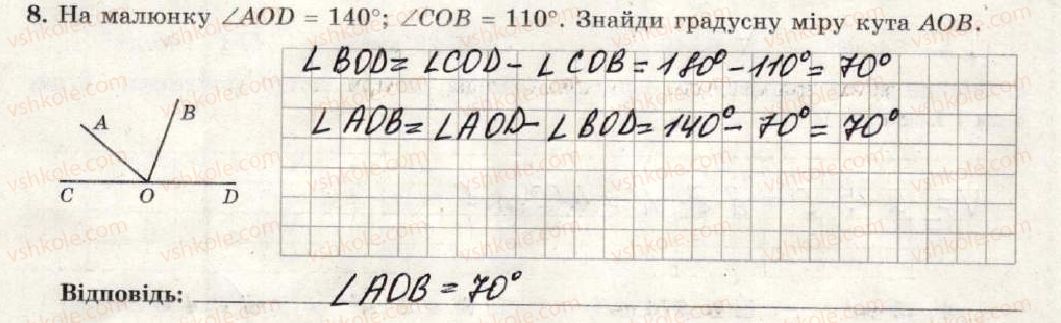 8. На малюнку ∠AOD = 140°; ∠COB = 110°. Знайди градусну міру кута AOB.
∠BOD = ∠COD - ∠COB = 180° - 110° = 70°
∠AOB = ∠AOD - ∠BOD = 140° - 70° = 70°
A
B
C O D
Відповідь: ∠AOB = 70°
vshkole.com